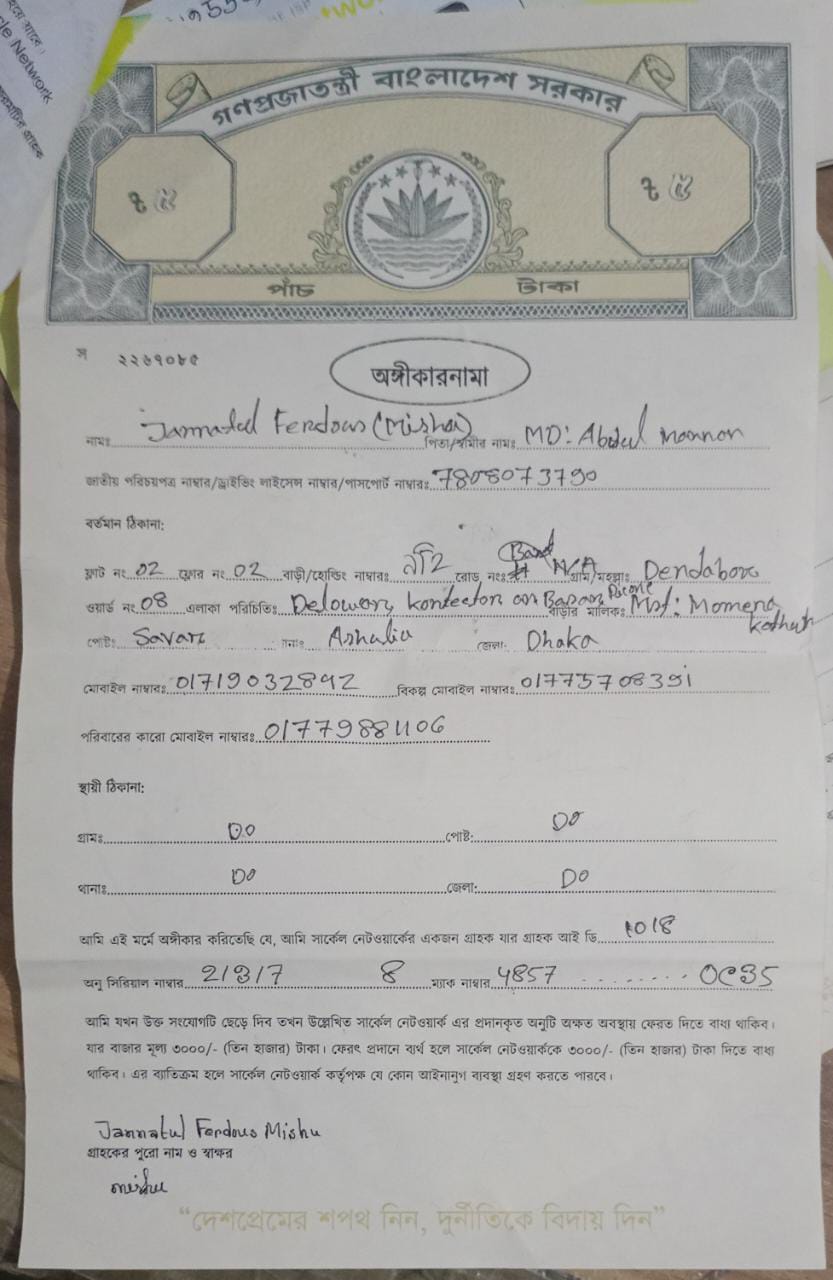 cle Network
গণপ্রজাতন্ত্রী বাংলাদেশ সরকার
৳ ৫ ৳ ৫
পাঁচ টাকা
স ২২৬৭০৮৫
অঙ্গীকারনামা
নামঃ Jannatul Ferdous (Mishu) পিতা/স্বামীর নামঃ MD: Abdul Mannan
জাতীয় পরিচয়পত্র নাম্বার/ড্রাইভিং লাইসেন্স নাম্বার/পাসপোর্ট নাম্বারঃ 7808073790
বর্তমান ঠিকানা:
ফ্লাট নং 02 ফ্লোর নং 02 বাড়ী/হোল্ডিং নাম্বারঃ রোড নংঃ N/A গ্রাম/মহল্লাঃ Dendabor
ওয়ার্ড নং 08 এলাকা পরিচিতিঃ বাড়ীর মালিকঃ Mst: Momena
পোষ্টঃ Savar থানাঃ Ashulia জেলা: Dhaka
মোবাইল নাম্বারঃ 01719032892 বিকল্প মোবাইল নাম্বারঃ 01775708391
পরিবারের কারো মোবাইল নাম্বারঃ 01779881106
স্থায়ী ঠিকানা:
গ্রামঃ DO পোষ্ট: DO
থানাঃ DO জেলা: DO
আমি এই মর্মে অঙ্গীকার করিতেছি যে, আমি সার্কেল নেটওয়ার্কের একজন গ্রাহক যার গ্রাহক আই ডি 1018
অনু সিরিয়াল নাম্বার 21317 8 ম্যাক নাম্বার 4857 ........ 0C35
আমি যখন উক্ত সংযোগটি ছেড়ে দিব তখন উল্লেখিত সার্কেল নেটওয়ার্ক এর প্রদানকৃত অনুটি অক্ষত অবস্থায় ফেরত দিতে বাধ্য থাকিব।
যার বাজার মূল্য ৩০০০/- (তিন হাজার) টাকা। ফেরৎ প্রদানে ব্যর্থ হলে সার্কেল নেটওয়ার্ককে ৩০০০/- (তিন হাজার) টাকা দিতে বাধ্য
থাকিব। এর ব্যতিক্রম হলে সার্কেল নেটওয়ার্ক কর্তৃপক্ষ যে কোন আইনানুগ ব্যবস্থা গ্রহণ করতে পারবে।
Jannatul Ferdous Mishu
গ্রাহকের পুরো নাম ও স্বাক্ষর
mishu
“দেশপ্রেমের শপথ নিন, দুর্নীতিকে বিদায় দিন”